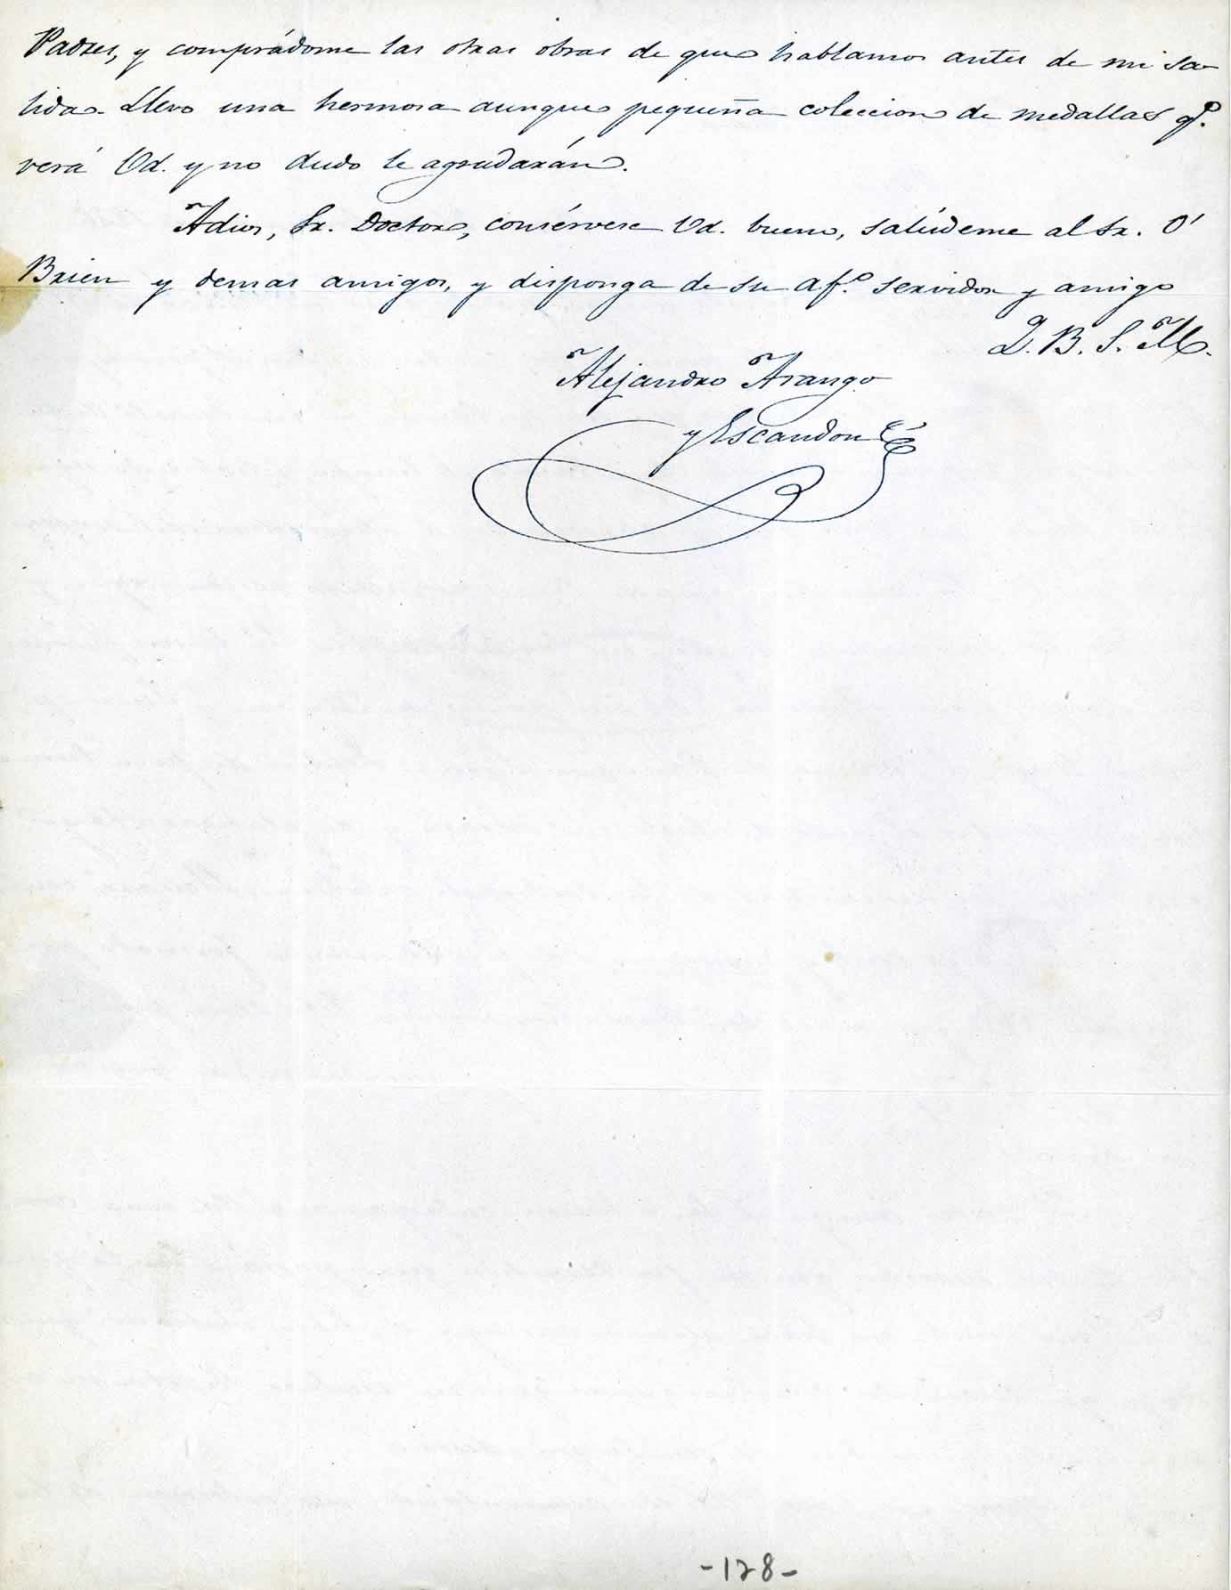 Padres, y comprádome las otras obras de que hablamos antes de mi sa-
lida. Llevo una hermosa aunque pequeña coleccion de medallas q.e
verá Vd. y no dudo le agradarán.
Adios, Sr. Doctor, consérvese Vd. bueno, salúdeme al Sr. O'
Brien y demas amigos, y disponga de su af.o servidor y amigo
Q. B. S. M.
Alejandro Arango
y Escandon
-128-